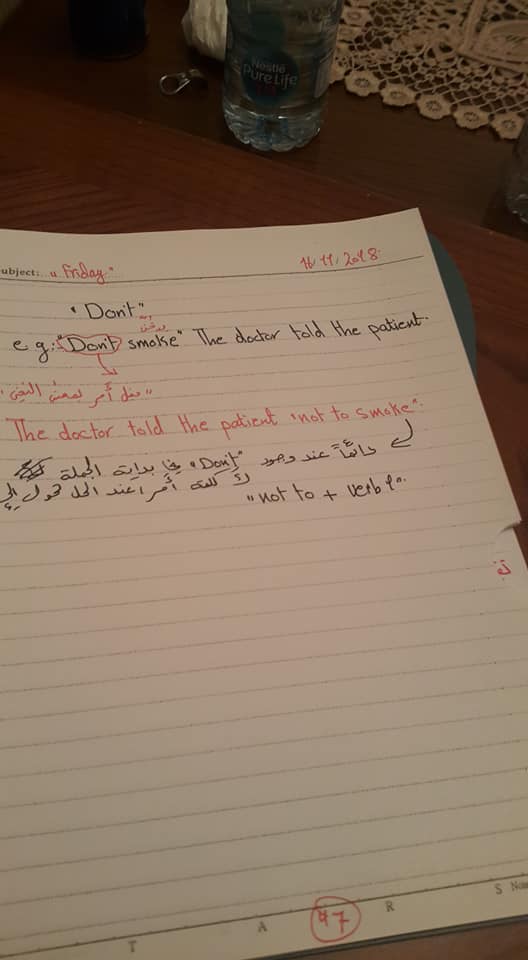 Nestlé
PureLife
ubject: "Friday"
16/11/2018
"Don't"
يدخن
e.g.: "Don't smoke" The doctor told the patient.
"فعل أمر بمعنى النفي"
The doctor told the patient "not to smoke".
دائماً عند وجود "Don't" في بداية الجملة
كلمة أمر عند الحل تحول إلى
"not to + verb".
T A R S
47